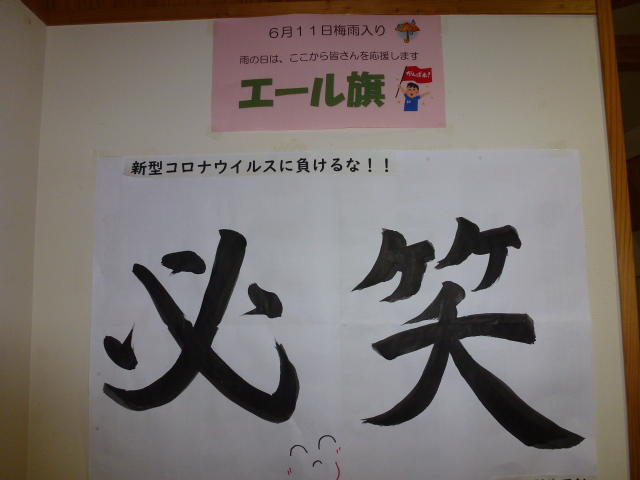 6月11日梅雨入り
雨の日は、ここから皆さんを応援します
エール旗
がんばれ!
新型コロナウイルスに負けるな!!
必笑